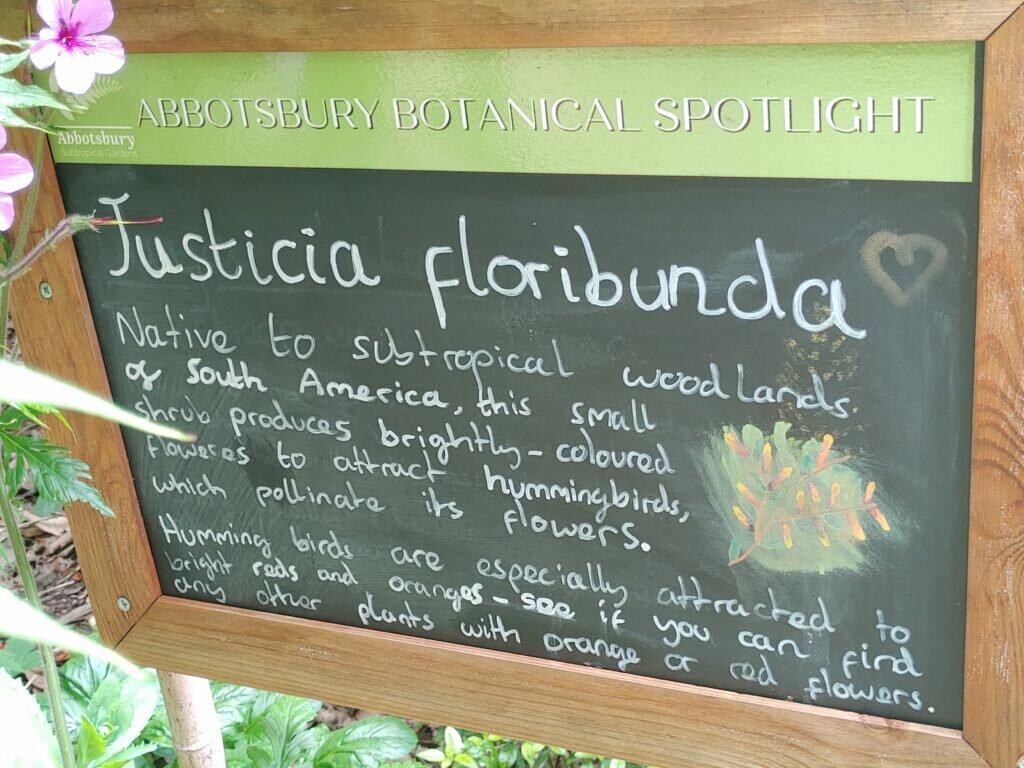 ABBOTSBURY BOTANICAL SPOTLIGHT
Abbotsbury
Subtropical Gardens
Justicia floribunda
Native to subtropical woodlands
of South America, this small
shrub produces brightly-coloured
floweres to attract hummingbirds,
which pollinate its flowers.
Humming birds are especially attracted to
bright reds and oranges - see if you can find
any other plants with orange or red flowers.